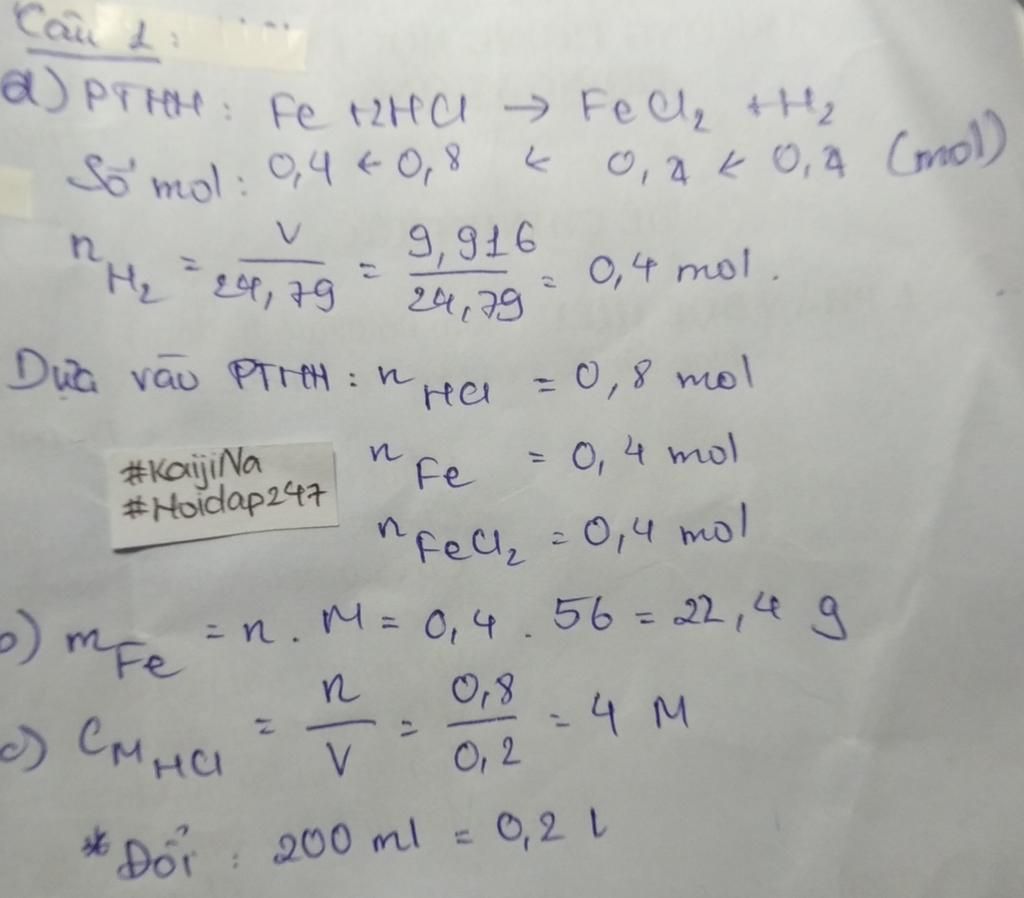 Câu 1:
a) PTHH: Fe + 2HCl → FeCl₂ + H₂
Số mol: 0,4 ← 0,8 ← 0,4 ← 0,4 (mol)
n_H₂ = V/24,79 = 9,916/24,79 = 0,4 mol.
Dựa vào PTHH: n_HCl = 0,8 mol
n_Fe = 0,4 mol
#KaijiNa
#Hoidap247
n_FeCl₂ = 0,4 mol
b) m_Fe = n . M = 0,4 . 56 = 22,4 g
c) C_M_HCl = n/V = 0,8/0,2 = 4 M
*Đổi: 200 ml = 0,2 l